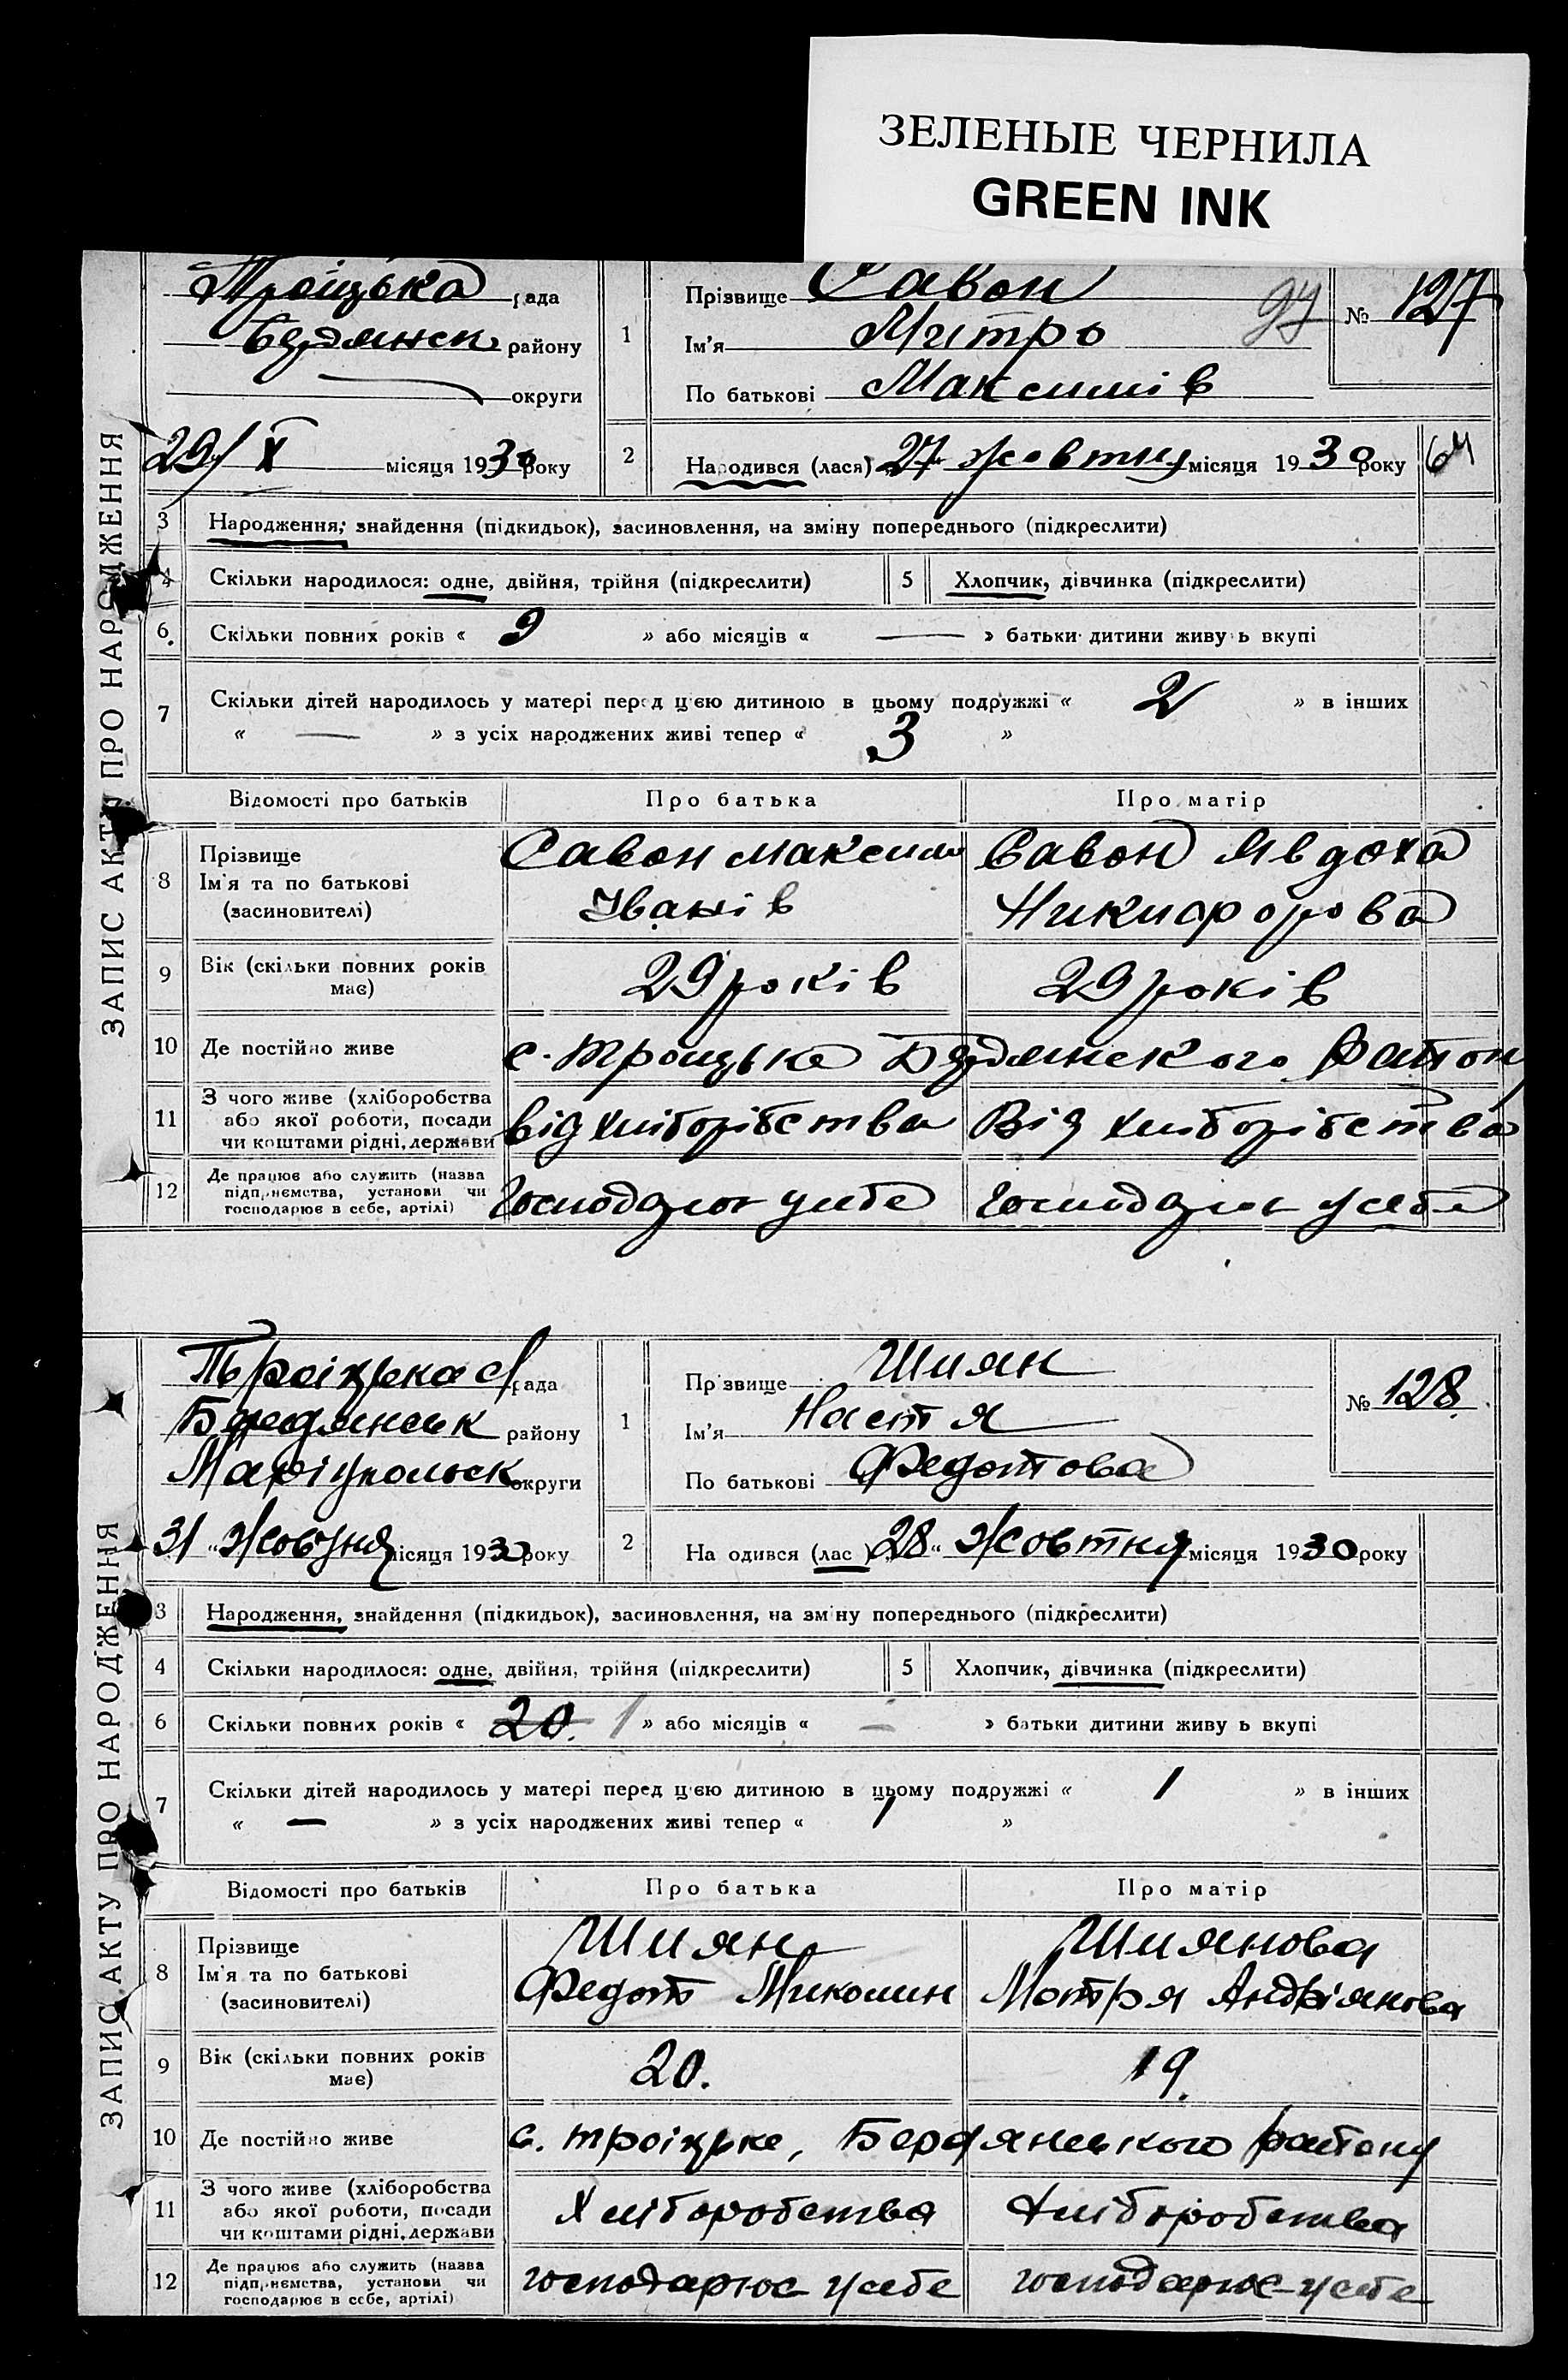 ЗЕЛЕНЫЕ ЧЕРНИЛА
GREEN INK
ЗАПИС АКТУ ПРО НАРОДЖЕННЯ
Троїцька рада
Бердянськ району
округи
29/X місяця 1930 року
1
Прізвище Савон
Ім'я Митро
По батькові Максимів
94
№ 127
2
Народився (лася) 27 жовтня місяця 1930 року
64
3 Народження, знайдення (підкидьок), засиновлення, на зміну попереднього (підкреслити)
4 Скільки народилося: одне, двійня, трійня (підкреслити) 5 Хлопчик, дівчинка (підкреслити)
6. Скільки повних років « 9 » або місяців « — » батьки дитини живуть вкупі
7 Скільки дітей народилось у матері перед цією дитиною в цьому подружжі « 2 » в інших
« — » з усіх народжених живі тепер « 3 »
Відомості про батьків Про батька Про матір
8 Прізвище
Ім'я та по батькові
(засиновителі)
Савон Максим
Іванів
Савон Явдоха
Никифорова
9 Вік (скільки повних років
має)
29 років 29 років
10 Де постійно живе с. Троицьке Бердянського Району
11 З чого живе (хліборобства
або якої роботи, посади
чи коштами рідні, держави
від хліборібства Від хліборібства
12 Де працює або служить (назва
підприємства, установи чи
господарює в себе, артілі)
Господарює у себе Господарює у себе
ЗАПИС АКТУ ПРО НАРОДЖЕННЯ
Троіцька с/рада
Бердянськ району
Маріупольск округи
31 „Жовтня місяця 1930 року
1
Прізвище Шиян
Ім'я Настя
По батькові Федотова
№ 128.
2
На одився (лас ) 28 „ Жовтня місяця 1930 року
3 Народження, знайдення (підкидьок), засиновлення, на зміну попереднього (підкреслити)
4 Скільки народилося: одне, двійня, трійня (підкреслити) 5 Хлопчик, дівчинка (підкреслити)
6 Скільки повних років « 20. 1 » або місяців « — » батьки дитини живу ь вкупі
7 Скільки дітей народилось у матері перед цією дитиною в цьому подружжі « 1 » в інших
« — » з усіх народжених живі тепер « 1 »
Відомості про батьків Про батька Про матір
8 Прізвище
Ім'я та по батькові
(засиновителі)
Шиян
Федот Миколин
Шиянова
Мотря Андріянова
9 Вік (скільки повних років
має)
20. 19.
10 Де постійно живе с. Троіцьке, Бердянського району
11 З чого живе (хліборобства
або якої роботи, посади
чи коштами рідні, держави
Хліборобства Хліборобства
12 Де працює або служить (назва
підприємства, установи чи
господарює в себе, артілі)
господарює у себе господарює у себе